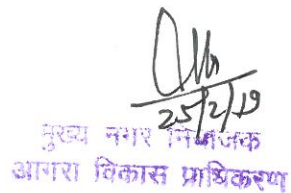 25/2/19
मुख्य नगर नियोजक
आगरा विकास प्राधिकरण